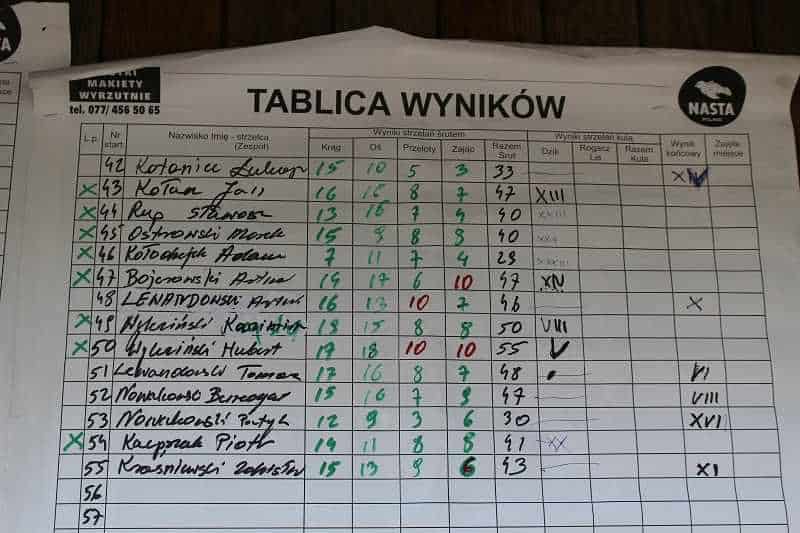 MAKIETY
WYRZUTNIE
tel. 077/ 456 50 65
TABLICA WYNIKÓW
NASTA
L.p. Nr start. Nazwisko Imię - strzelca (Zespół) Wyniki strzelań śrutem Wyniki strzelań kulą Wynik końcowy Zajęte miejsce
Krąg Oś Przeloty Zając Razem Śrut Dzik Rogacz Lis Razem Kula
42 15 10 5 3 33
X 43 Kołan Jan 16 16 8 7 47 XIII
X 44 Rup 13 16 7 4 40
X 45 Ostrowski Marek 15 9 8 8 40
X 46 Kołodziejek Adam 7 11 7 4 29
X 47 Bojcrowski Artur 14 17 6 10 47
48 LENARDOWSKI Artur 16 13 10 7 46 X
X 49 Kazimierz 19 15 8 8 50 VIII
X 50 Hubert 17 18 10 10 55 V
51 Lewandowski Tomasz 17 16 8 7 48 VI
52 15 16 7 9 47 VIII
53 Nowakowski Patryk 12 9 3 6 30 XVI
X 54 Kacprzak Piotr 14 11 8 8 41 XX
55 Kraśniewski 15 13 9 6 43 XI
56
57